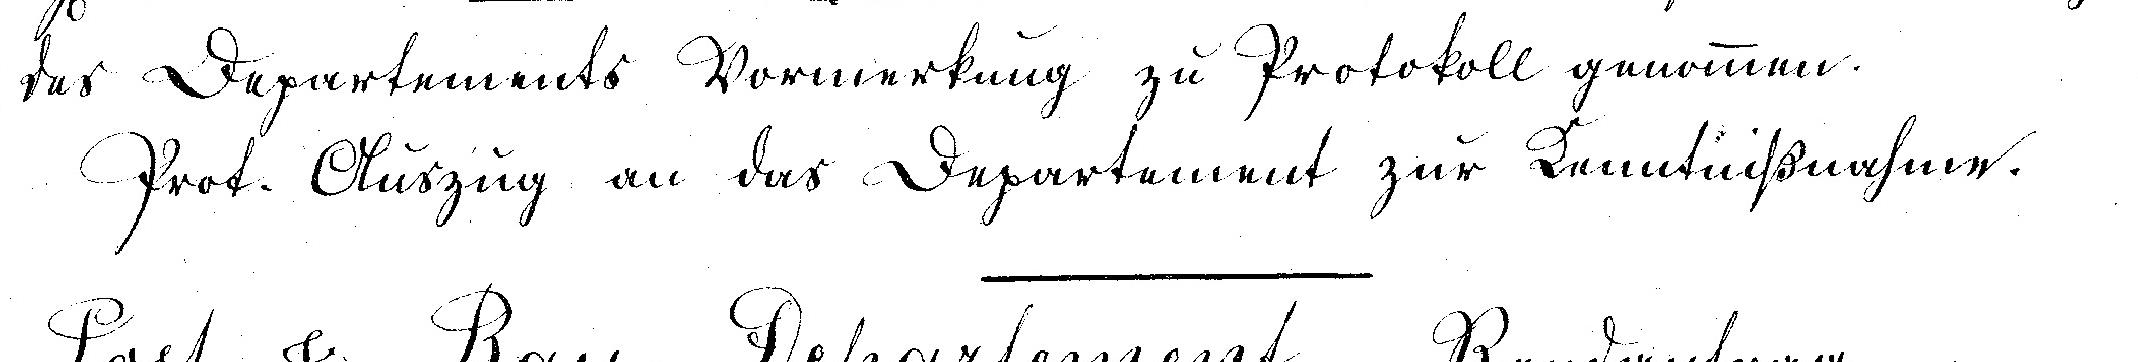 des Departements Vormerkung zu Protokoll genom̄en.
Prot. Auszug an das Departement zur Kenntnißnahme.
Post & Bau Departement Randantrag